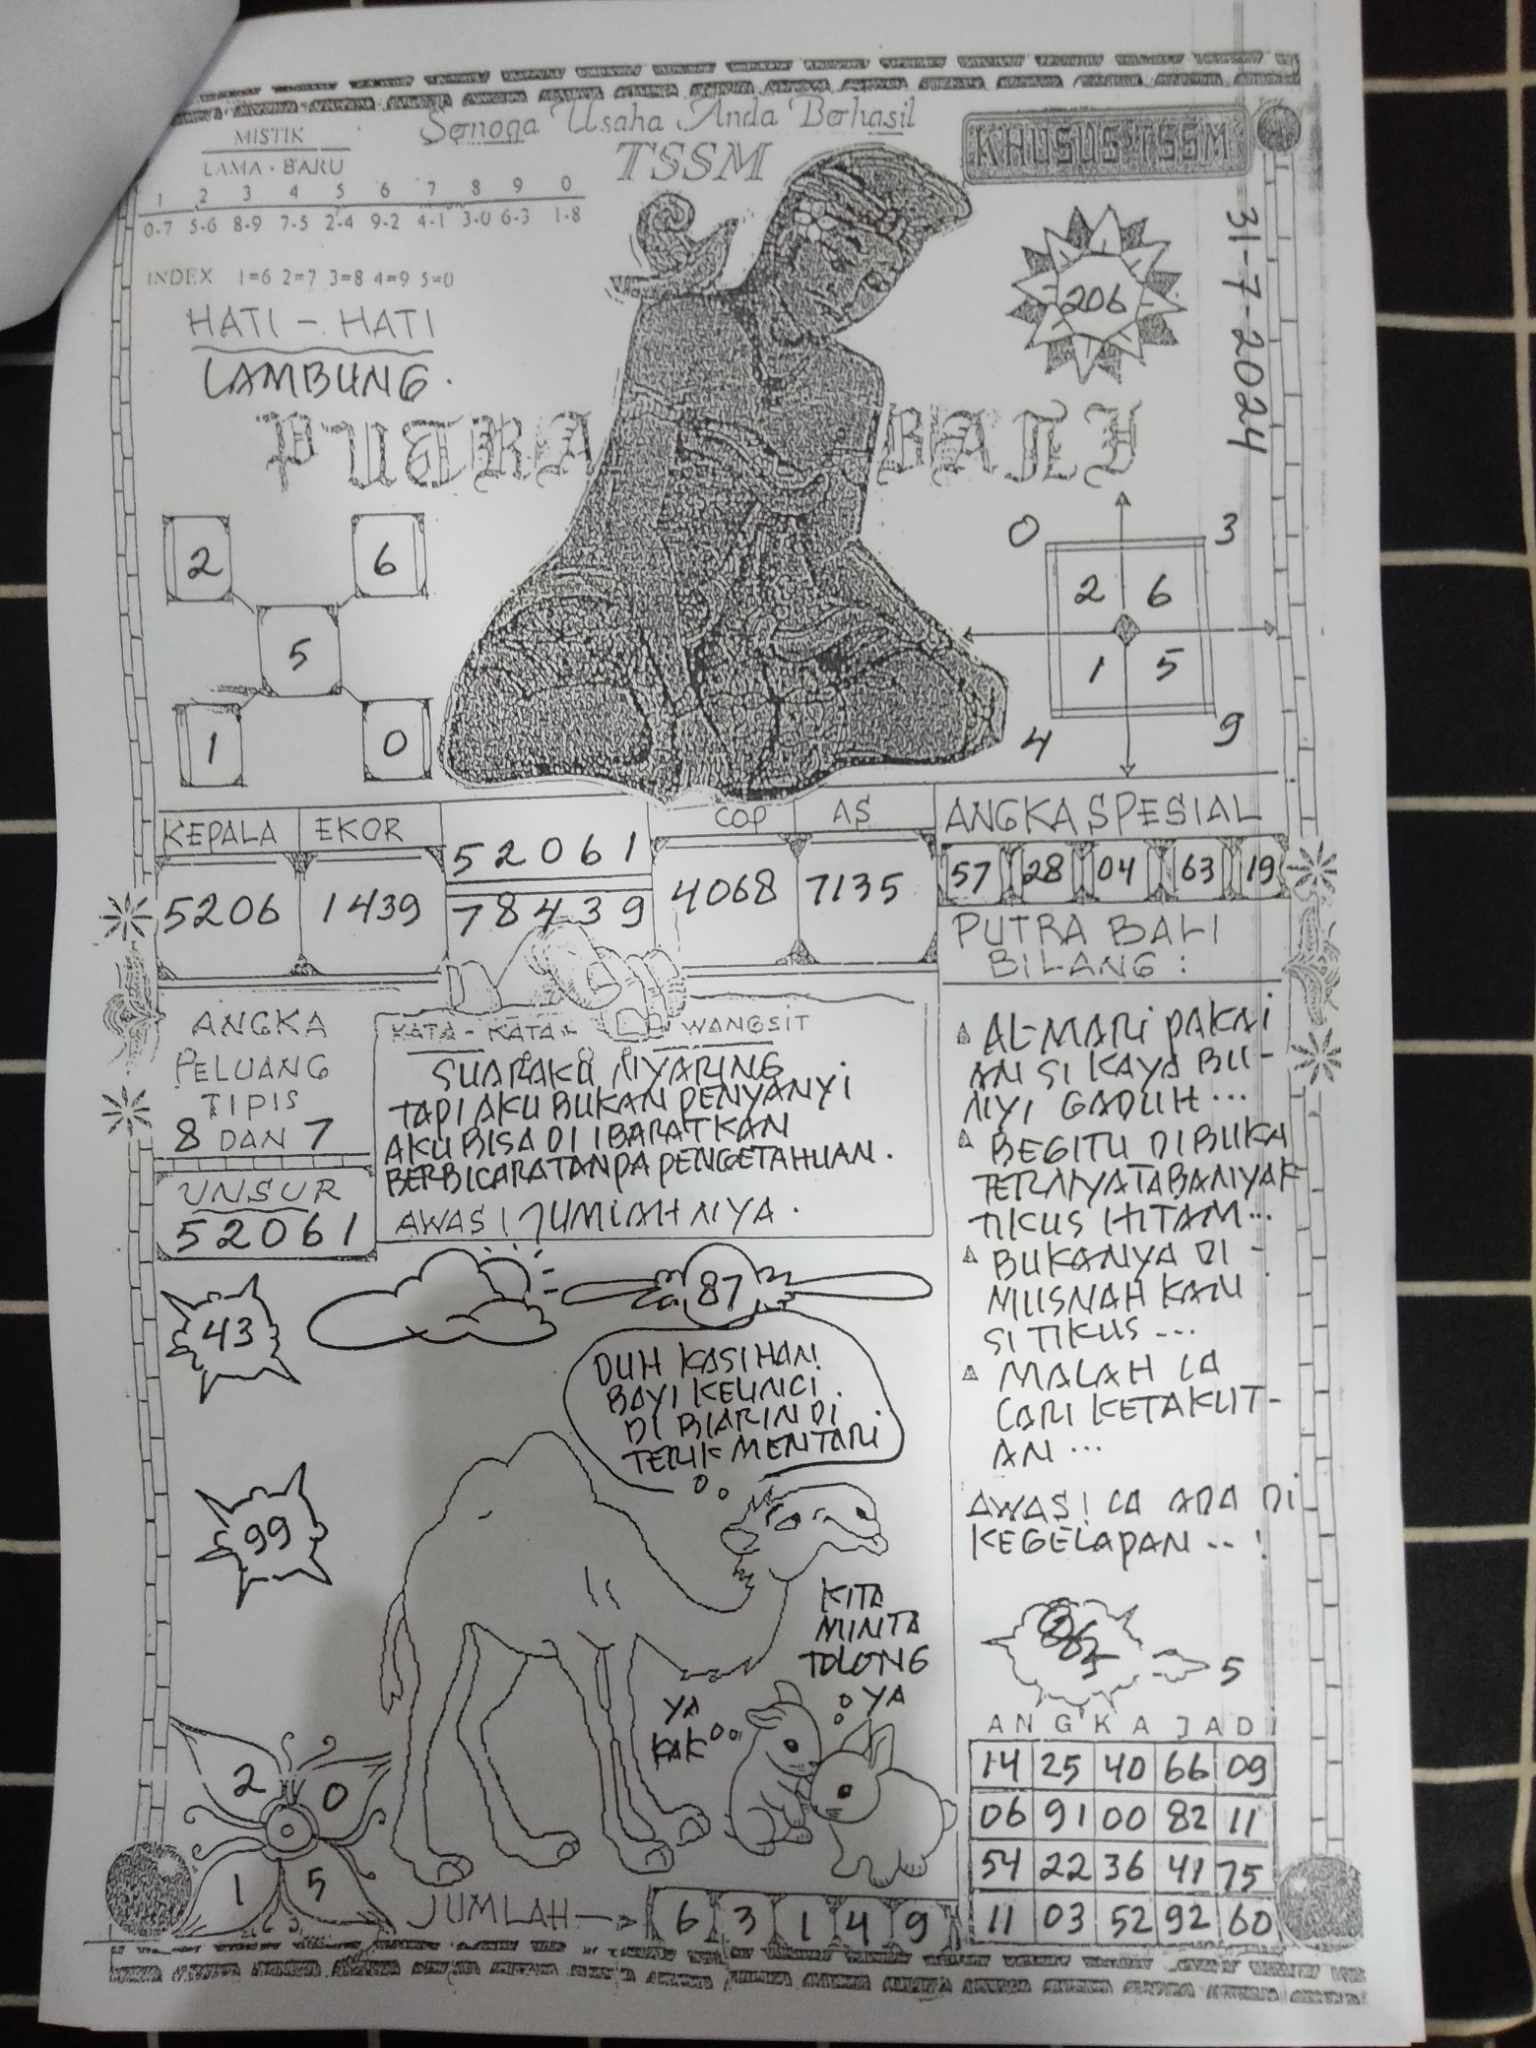 MISTIK
LAMA - BARU
1 2 3 4 5 6 7 8 9 0
0-7 5-6 8-9 7-5 2-4 9-2 4-1 3-0 6-3 1-8
INDEX 1=6 2=7 3=8 4=9 5=0
HATI - HATI
LAMBUNG.
Semoga Usaha Anda Berhasil
TSSM
KHUSUS TSSM
31-7-2024
206
PUTRA BALI
2 6
5
1 0
0 3
2 6
1 5
4 9
KEPALA EKOR
5206 1439
52061
78439
COP AS
4068 7135
ANGKA SPESIAL
57 28 04 63 19
PUTRA BALI
BILANG :
ANGKA
PELUANG
TIPIS
8 DAN 7
UNSUR
52061
KATA - KATA WANGSIT
SUARAKU NYARING
TAPI AKU BUKAN PENYANYI
AKU BISA DI IBARATKAN
BERBICARA TANPA PENGETAHUAN.
AWAS! JUMLAHNYA.
AL-MARI PAKAI
AN SI KAYA BU-
NYI GADUH...
BEGITU DIBUKA
TERNYATA BANYAK
TIKUS HITAM...
BUKANYA DI -
MUSNAH KAN
SI TIKUS ...
MALAH CA
CARI KETAKUT-
AN ...
AWAS! CA ADA DI
KEGELAPAN ... !
43
87
99
DUH KASIHAN
BAYI KELINCI
DI BIARIN DI
TERIK MENTARI
KITA
MINTA
TOLONG
YA
YA
KAK
5
2 0
1 5
JUMLAH
6 3 1 4 9
ANGKA JADI
14 25 40 66 09
06 91 00 82 11
54 22 36 41 75
11 03 52 92 60